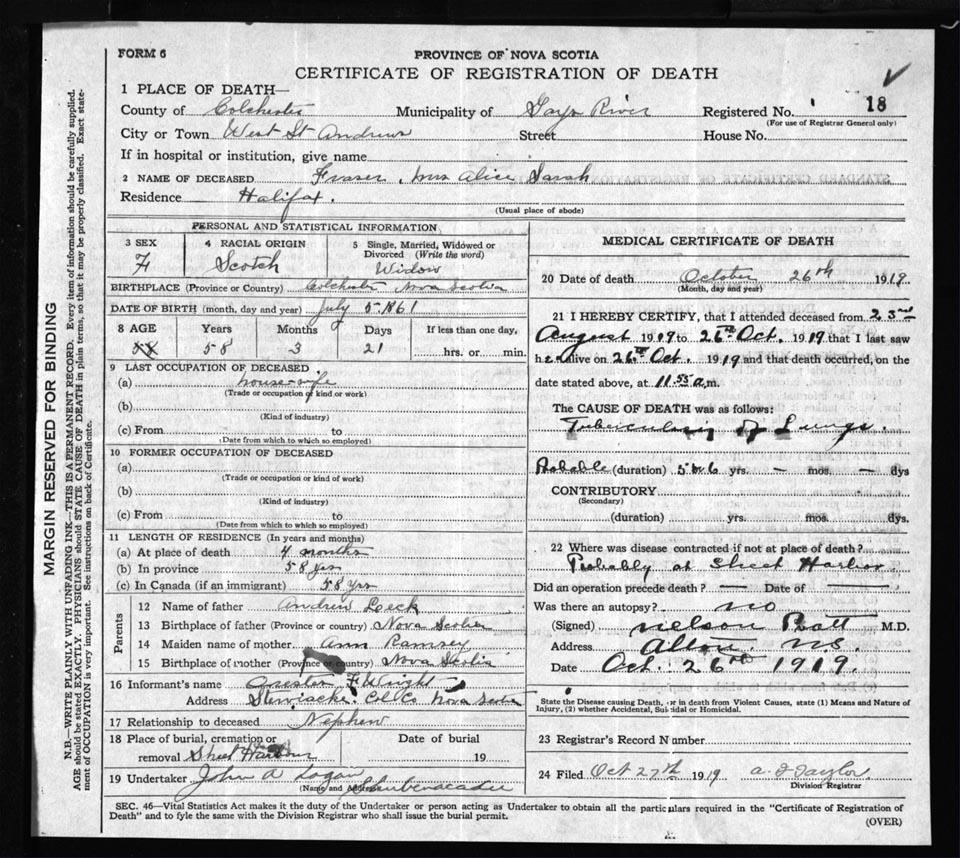 FORM 6
PROVINCE OF NOVA SCOTIA
CERTIFICATE OF REGISTRATION OF DEATH
18
1 PLACE OF DEATH—
County of Colchester Municipality of Gays River Registered No.
(For use of Registrar General only)
City or Town West St Andrews Street House No.
If in hospital or institution, give name
2 NAME OF DECEASED Fraser, Mrs Alice Sarah
Residence Halifax.
(Usual place of abode)
PERSONAL AND STATISTICAL INFORMATION
3 SEX F
4 RACIAL ORIGIN Scotch
5 Single, Married, Widowed or Divorced (Write the word) Widow
BIRTHPLACE (Province or Country) Colchester Nova Scotia
DATE OF BIRTH (month, day and year) July 5 1861
8 AGE Years Months Days If less than one day,
58 3 21 hrs. or min.
9 LAST OCCUPATION OF DECEASED
(a) housewife
(Trade or occupation or kind of work)
(b)
(Kind of industry)
(c) From to
(Date from which to which so employed)
10 FORMER OCCUPATION OF DECEASED
(a)
(Trade or occupation or kind of work)
(b)
(Kind of industry)
(c) From to
(Date from which to which so employed)
11 LENGTH OF RESIDENCE (In years and months)
(a) At place of death 4 months
(b) In province 58 yrs
(c) In Canada (if an immigrant) 58 yrs
Parents
12 Name of father Andrew
13 Birthplace of father (Province or country) Nova Scotia
14 Maiden name of mother Ann Ramsey
15 Birthplace of mother (Province or country) Nova Scotia
16 Informant's name F Wright
Address Stewiacke Col Co Nova Scotia
17 Relationship to deceased Nephew
18 Place of burial, cremation or Date of burial
removal Sheet Harbour 19
19 Undertaker John A Logan
(Name and Address) Shubenacadie
MEDICAL CERTIFICATE OF DEATH
20 Date of death October 26th 1919
(Month, day and year)
21 I HEREBY CERTIFY, that I attended deceased from 23rd
August 1919 to 26th Oct. 1919 that I last saw
her alive on 26th Oct. 1919 and that death occurred, on the
date stated above, at 11.55 a.m.
The CAUSE OF DEATH was as follows:
Tuberculosis of Lungs.
Probable (duration) 5 or 6 yrs. — mos. — dys
CONTRIBUTORY
(Secondary)
(duration) yrs. mos. dys.
22 Where was disease contracted if not at place of death?
Probably at Sheet Harbor
Did an operation precede death? — Date of —
Was there an autopsy? no
(Signed) Nelson Pratt M.D.
Address Alton. NS.
Date Oct. 26th 1919.
State the Disease causing Death, or in death from Violent Causes, state (1) Means and Nature of
Injury, (2) whether Accidental, Suicidal or Homicidal.
23 Registrar's Record Number
24 Filed Oct 27th 1919 Taylor
Division Registrar
SEC. 46—Vital Statistics Act makes it the duty of the Undertaker or person acting as Undertaker to obtain all the particulars required in the "Certificate of Registration of
Death" and to fyle the same with the Division Registrar who shall issue the burial permit.
(OVER)
MARGIN RESERVED FOR BINDING
N.B.—WRITE PLAINLY WITH UNFADING INK—THIS IS A PERMANENT RECORD. Every item of information should be carefully supplied.
AGE should be stated EXACTLY. PHYSICIANS should STATE CAUSE OF DEATH in plain terms, so that it may be properly classified. Exact state-
ment of OCCUPATION is very important. See instructions on back of Certificate.